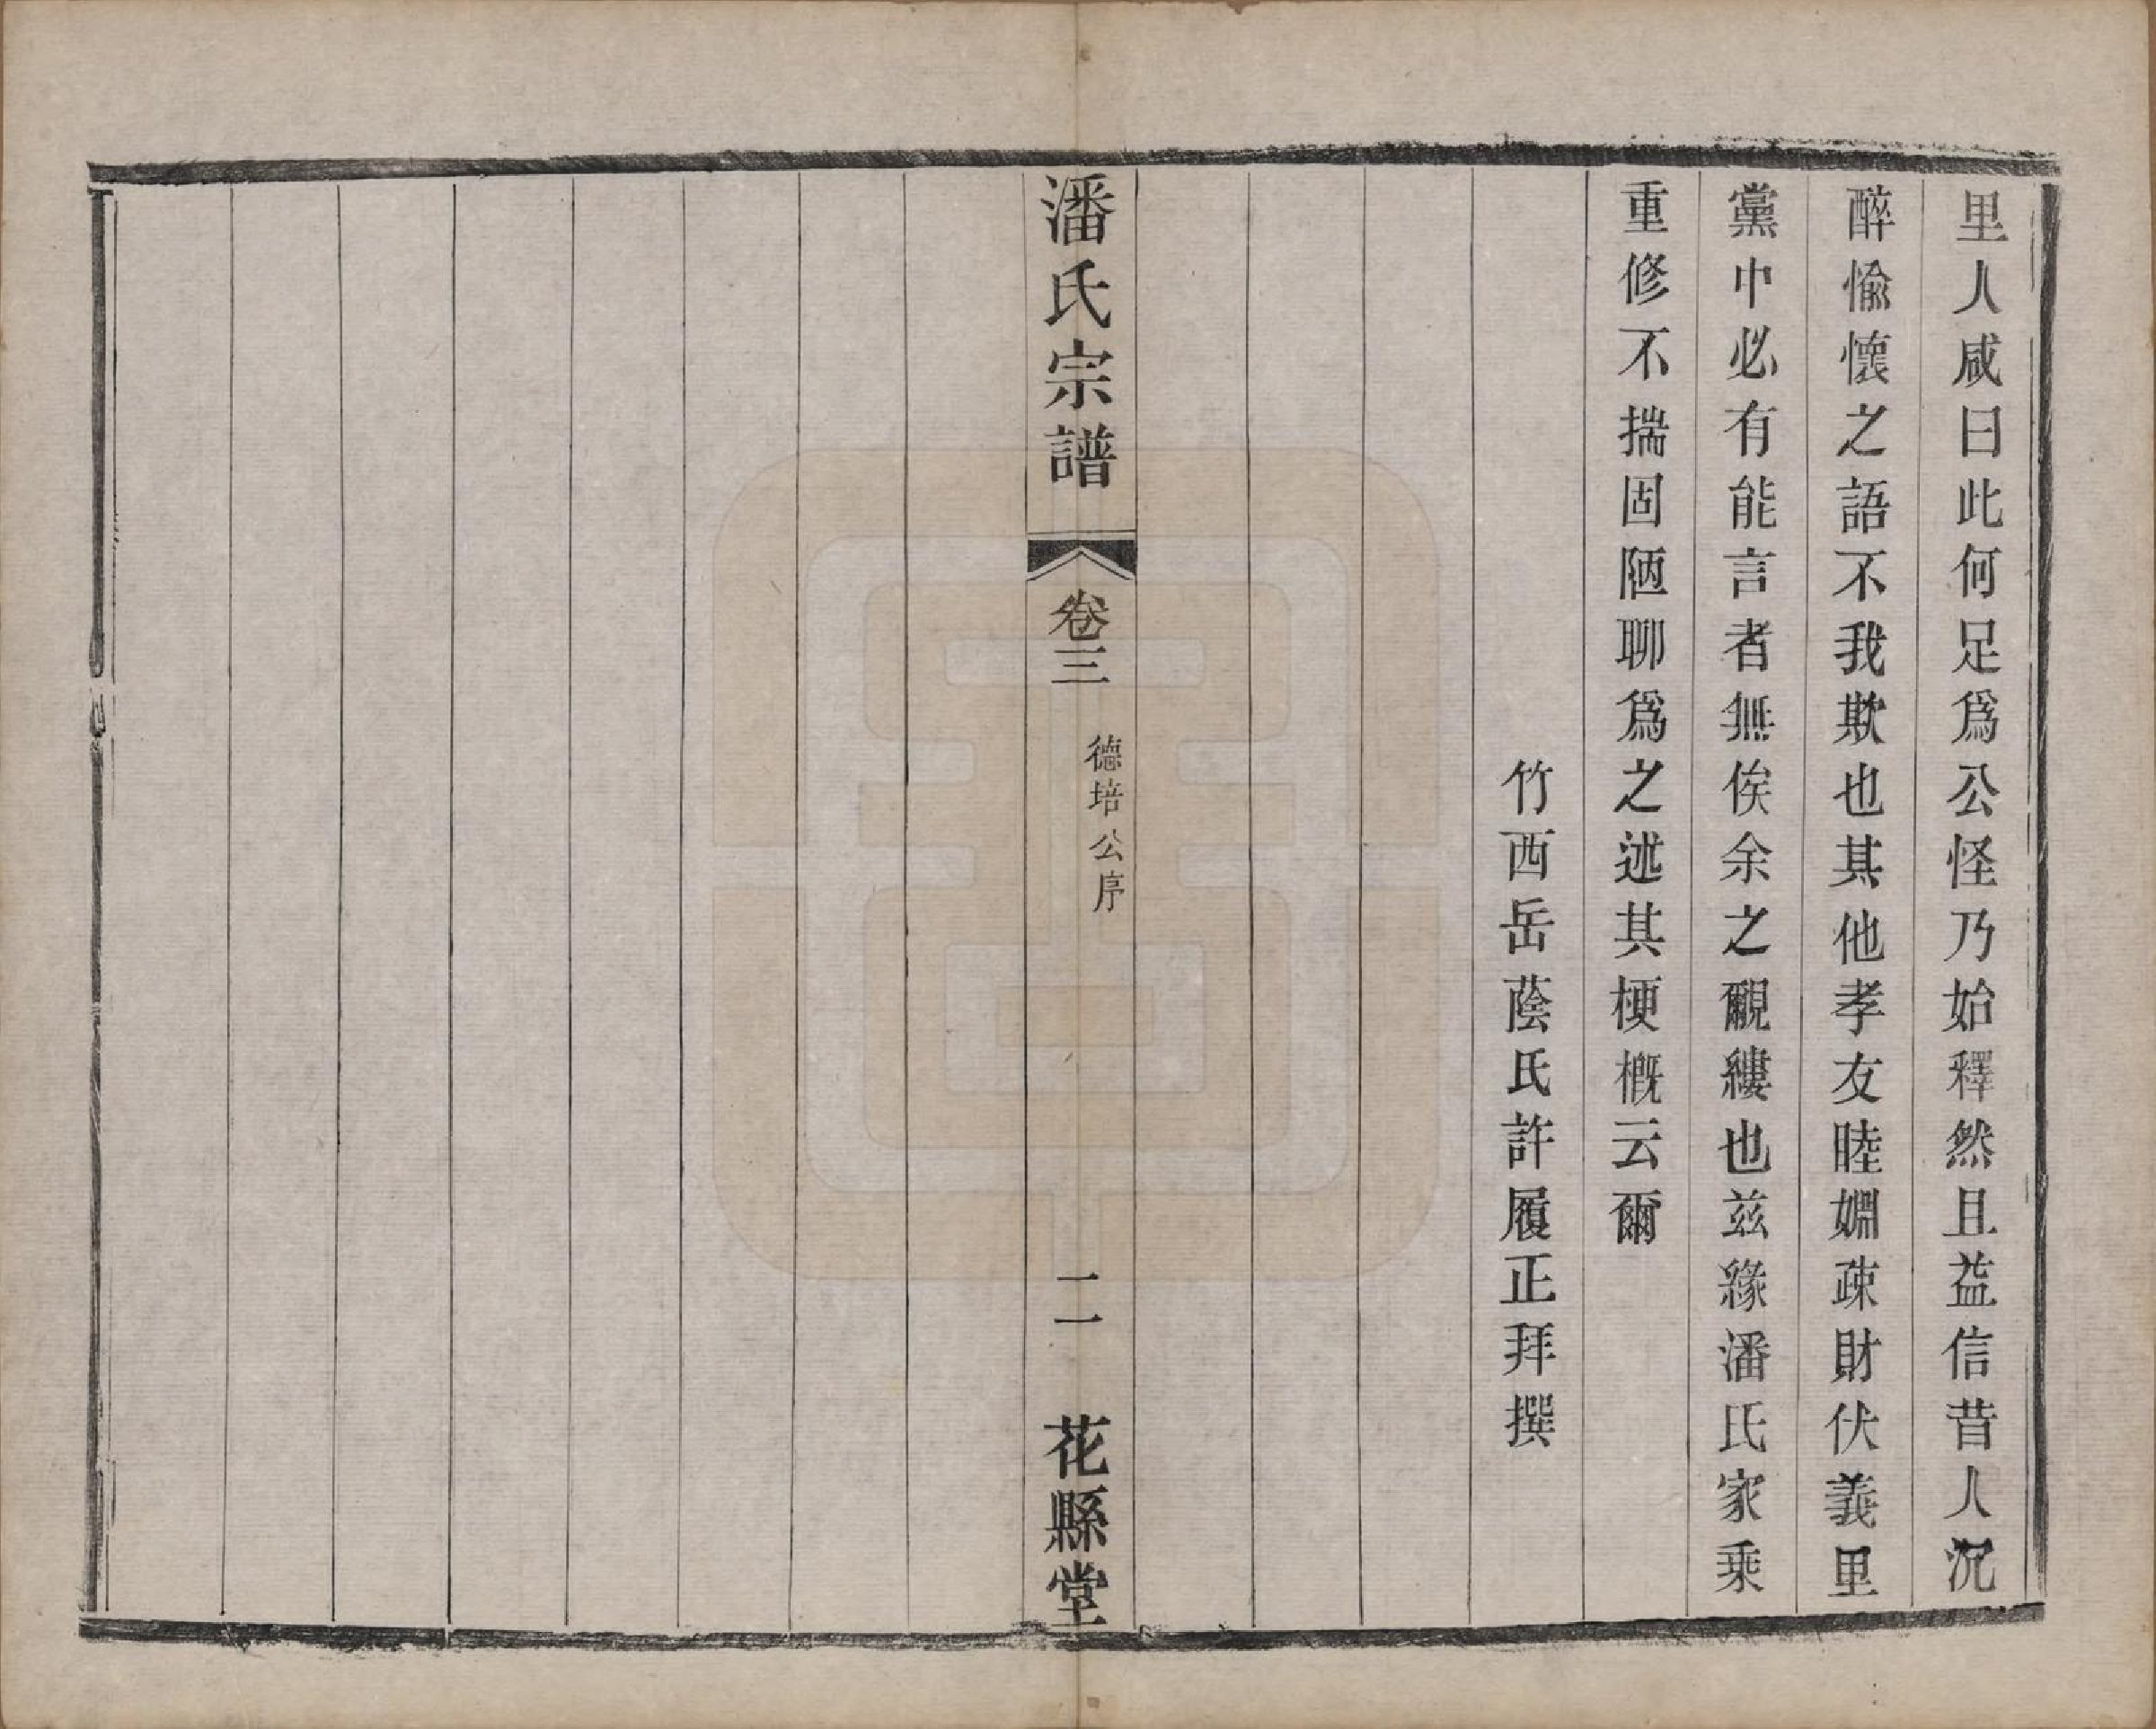 里人咸曰此何足爲公怪乃始釋然且益信昔人沉
醉愉懷之語不我欺也其他孝友睦婣疎財伏義里
黨中必有能言者無俟余之覼縷也兹緣潘氏家乘
重修不揣固陋聊爲之述其梗概云爾
竹西岳蔭氏許履正拜撰
潘氏宗譜
卷三
德培公序
二
花縣堂